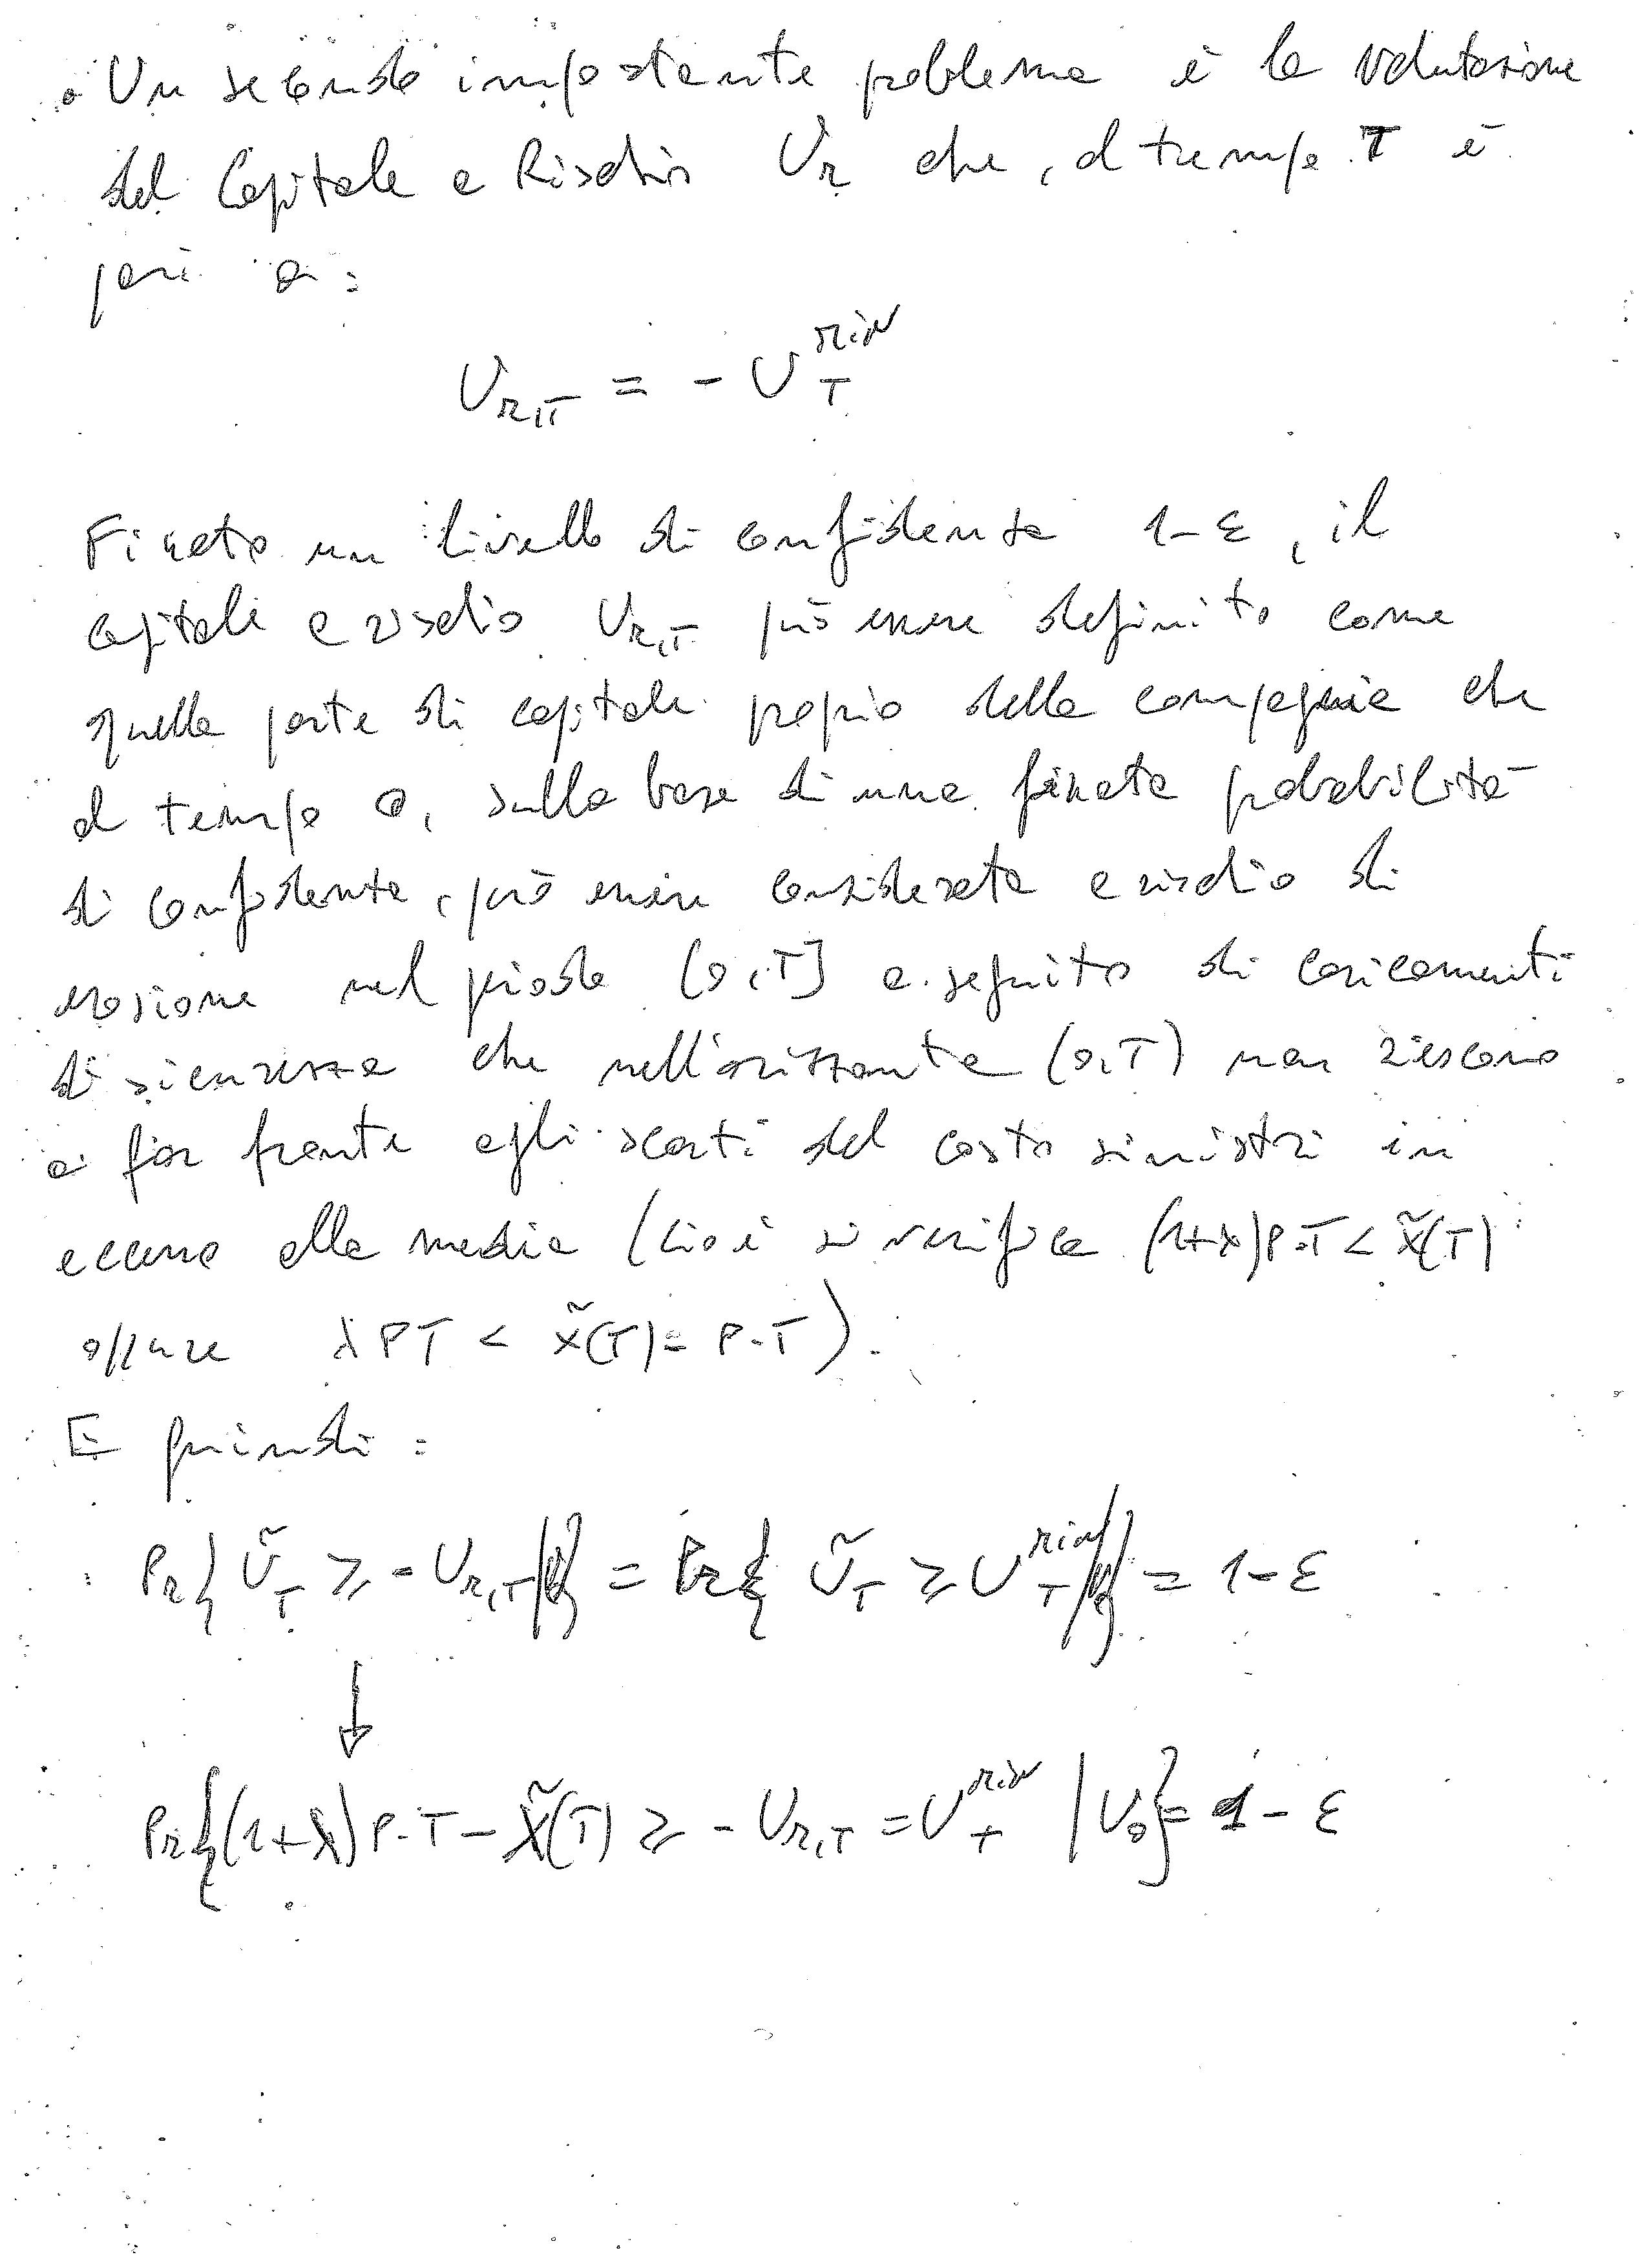 • Un secondo importante problema è la valutazione
del Capitale a Rischio Ur che, al tempo T è
pari a:
U_{r,T} = - U_T^{min}
Fissato un livello di confidenza 1-ε, il
capitale a rischio U_{r,T} può essere definito come
quella parte di capitale proprio della compagnia che
al tempo 0, sulla base di una fissata probabilità
di confidenza, può essere considerata a rischio di
erosione nel periodo (0,T] a seguito di caricamenti
di sicurezza che nell'orizzonte (0,T) non riescono
a far fronte agli scarti del costo sinistri in
eccesso alla media (cioè si verifica (1+λ)P·T < X̃(T)
oppure λPT < X̃(T) = P·T).
E quindi:
Pr{Ũ_T ≥ - U_{r,T}} = Pr{Ũ_T ≥ U_T^{min}} = 1-ε
↓
Pr{(1+λ)P·T - X̃(T) ≥ - U_{r,T} = U_T^{min} | U_0} = 1-ε